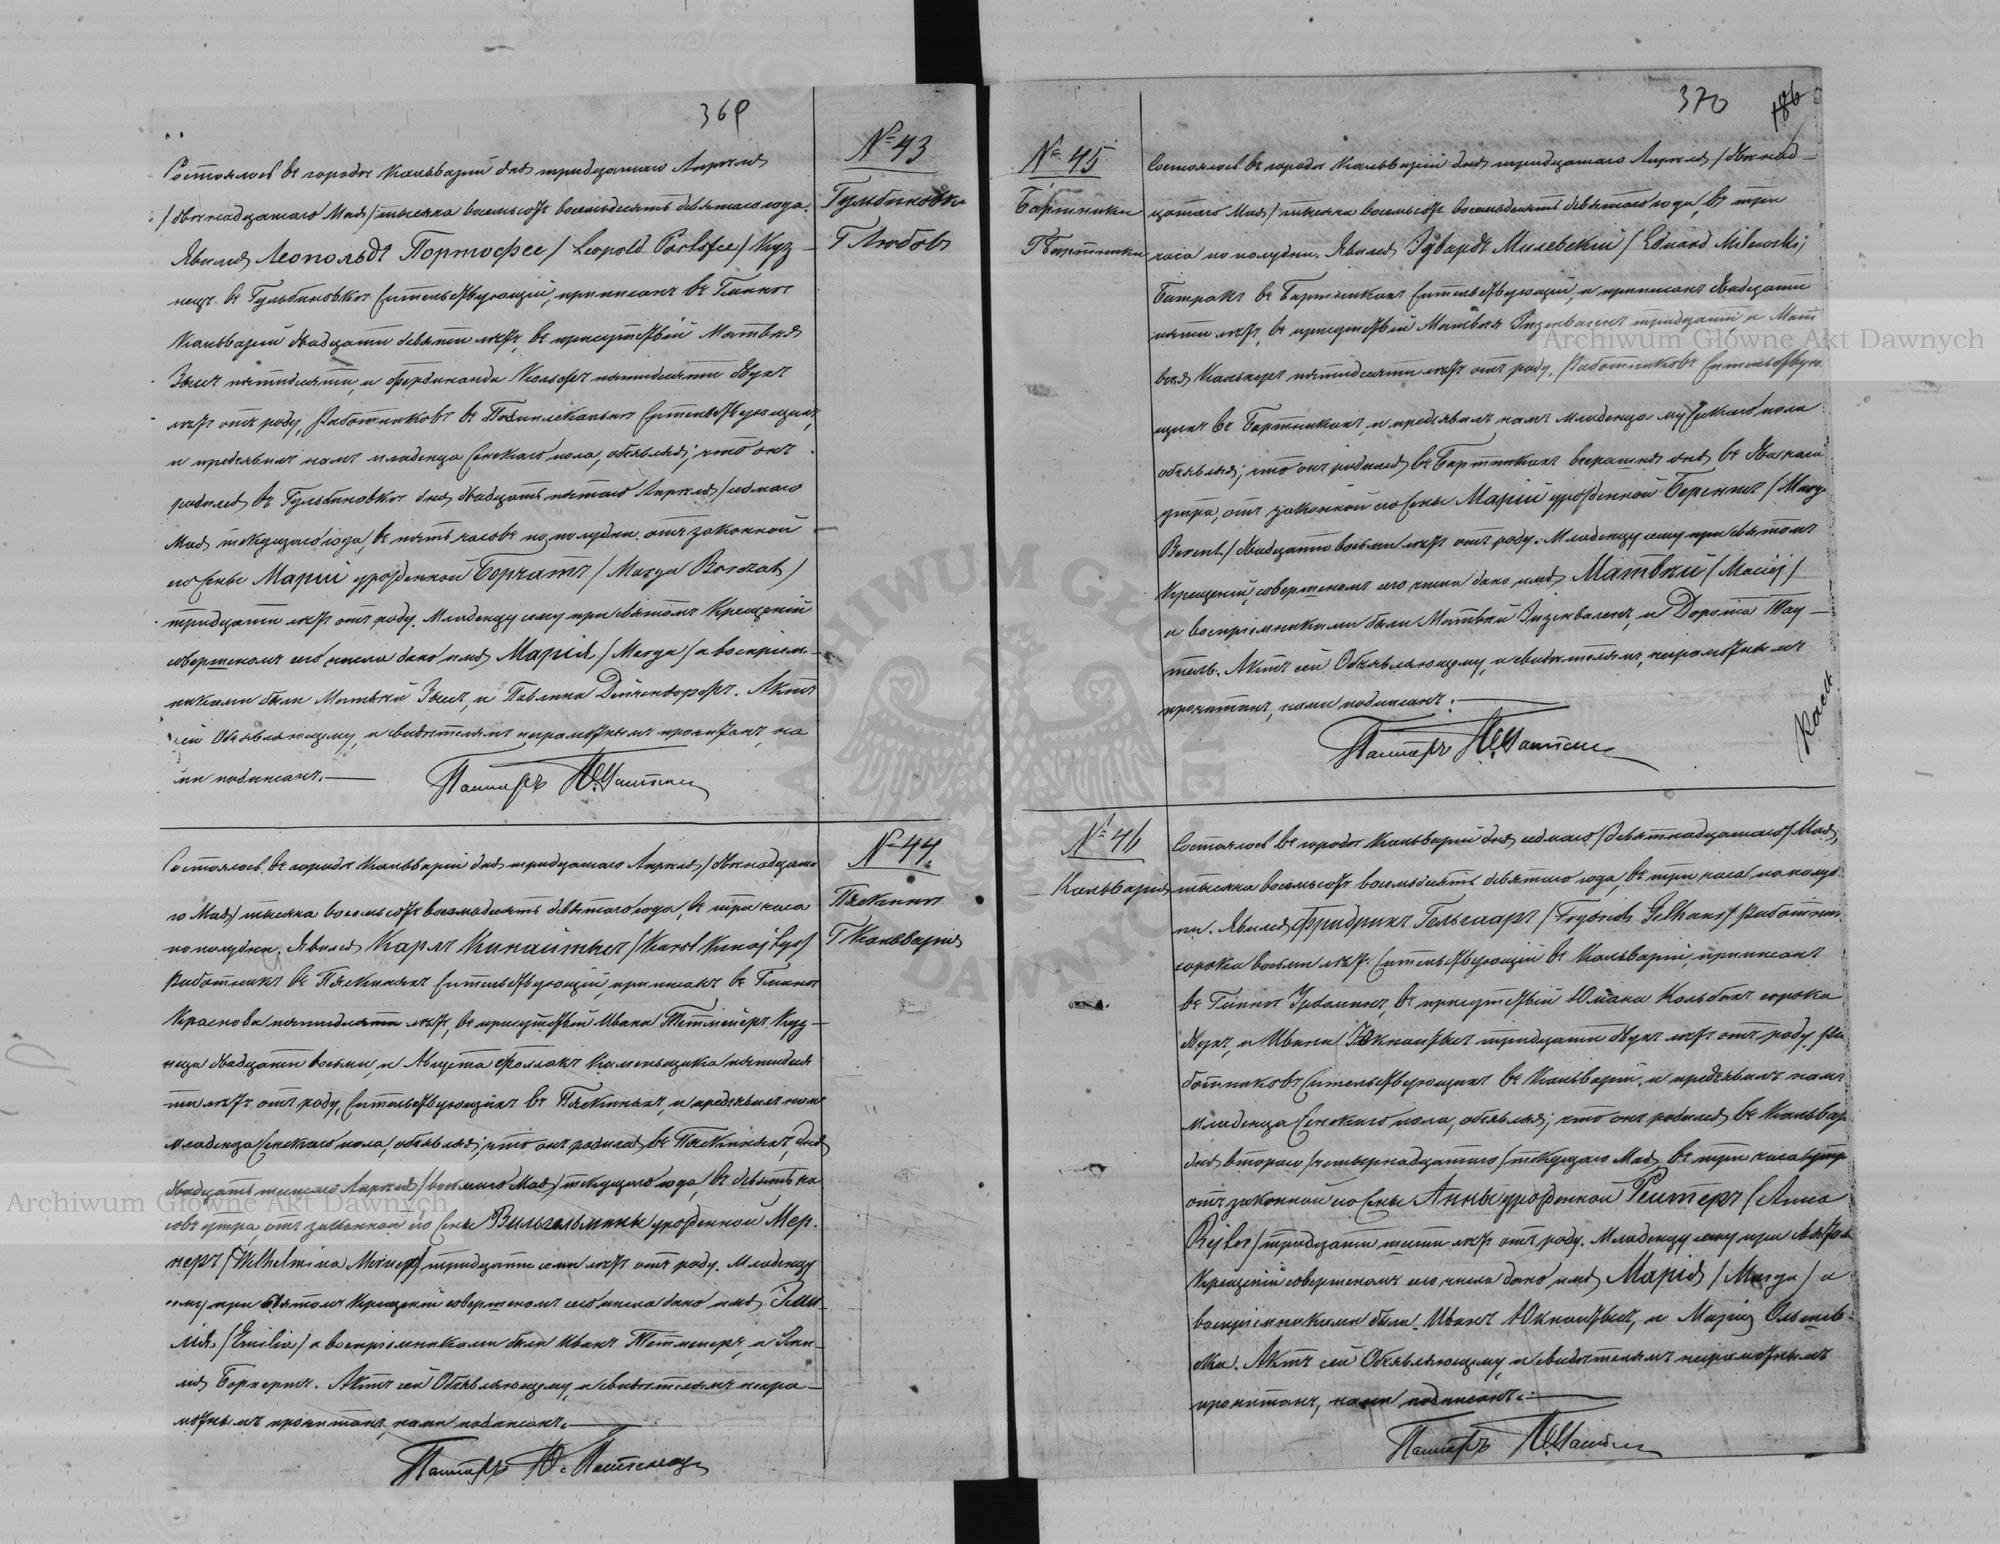 369
№ 43
Гульбиновка
Г Любовъ
Состоялось въ городѣ Кальваріи дня тридцатаго Апрѣля
/двѣнадцатаго Мая/ тысяча восемьсотъ восемьдесятъ девятаго года.
Явился Леопольдъ Портофее /Leopold Portofee/ Куз-
нецъ въ Гульбиновкѣ жительствующій, приписанъ въ Гминѣ
Кальварій двадцати девяти лѣтъ, въ присутствіи Матвея
пятидесяти, и Фердинанда пятидесяти двухъ
лѣтъ отъ роду, работниковъ въ жительствующихъ,
и предъявилъ намъ младенца женскаго пола, объявляя; что онъ
родился въ Гульбиновкѣ дня двадцать пятаго Апрѣля /седмаго
Мая текущаго года, въ пять часовъ по полудни, отъ законной
его жены Маріи урожденной Борчатъ /Marya Borczat/
тридцати лѣтъ отъ роду. Младенцу сему при святомъ Крещеніи
совершеномъ сего числа дано имя Марія /Marya/ а воспріем-
никами были Матвей и Павлина Дейчендорфъ. Актъ
сей Объявляющему, и свидѣтелямъ неграмотнымъ прочитанъ, на-
ми подписанъ.
Пасторъ
№ 44.
Пяскини
Г Кальварія
Состоялось въ городѣ Кальваріи дня тридцатаго Апрѣля /двѣнадцата-
го Мая/ тысяча восемьсотъ восемьдесятъ девятаго года, въ три часа
по полудни. Явился Карлъ Кинайтысъ /Karol Kinajtys/
работникъ въ Пяскиняхъ жительствующій, приписанъ въ Гминѣ
Краснова пятидесяти лѣтъ, въ присутствіи Ивана Тетмейеръ Куз-
неца двадцати восьми, и Августа Фоллакъ Каменьщика пятидеся
ти лѣтъ отъ роду, жительствующихъ въ Пяскиняхъ, и предъявилъ намъ
младенца женскаго пола, объявляя; что онъ родился въ Пяскиняхъ, дня
двадцать шестаго Апрѣля /восьмаго Мая/ текущаго года, въ девять ча-
совъ утра, отъ законной его жены Вильгельмины урожденной Мер-
неръ /Wilhelmina Merner/ тридцати семи лѣтъ отъ роду. Младенцу
сему при святомъ Крещеніи совершеномъ сего числа дано имя Эми-
лія /Emilia/ а воспріемниками были Иванъ Тетмейеръ, и Эми-
лія Боркертъ. Актъ сей Объявляющему, и свидѣтелямъ негра-
мотнымъ прочитанъ, нами подписанъ.
Пасторъ
370
186
№ 45
Бартники
Г Бартники
Состоялось въ городѣ Кальваріи дня тридцатаго Апрѣля /двѣнад-
цатаго Мая/ тысяча восемьсотъ восемьдесятъ девятаго года, въ три
часа по полудни. Явился Эдвардъ Милевскій /Eduard Milewski/
Батракъ въ Бартникахъ жительствующій, и приписанъ двадцати
пяти лѣтъ, въ присутствіи Матвея Эизенвагенъ тридцати и Мат
вея пятидесяти лѣтъ отъ роду, работниковъ жительствую-
щихъ въ Бартникахъ, и предъявилъ намъ младенца мужескаго пола
объявляя; что онъ родился въ Бартникахъ вчерашня дня въ два часа
утра, отъ законной его жены Маріи урожденной Беренть /Marya
Berent/ двадцати восьми лѣтъ отъ роду. Младенцу сему при святомъ
Крещеніи, совершеномъ сего числа дано имя Матвѣй /Maciej/
а воспріемниками были Матвѣй Эизенвагенъ, и Дорота Тау-
тель. Актъ сей Объявляющему, и свидѣтелямъ, неграмотнымъ
прочитанъ, нами подписанъ.
Пасторъ
№ 46
Кальварія
Состоялось въ городѣ Кальваріи дня седмаго /девятнадцатаго/ Мая,
тысяча восемьсотъ восемьдесятъ девятаго года, въ три часа по полуд-
ни. Явился Фридрихъ Гельгааръ /Frydrich Gelhaar/ работникъ
сорока восьми лѣтъ жительствующій въ Кальваріи, приписанъ
въ Гминѣ въ присутствіи сорока
двухъ, и Ивана Юкнайтысъ тридцати двухъ лѣтъ отъ роду ра-
ботниковъ жительствующихъ въ Кальваріи, и предъявилъ намъ
младенца женскаго пола, объявляя; что онъ родился въ Кальвар
дня втораго /четырнадцатаго/ текущаго Мая, въ три часа утра
отъ законной его жены Анны урожденной Рейтеръ /Anna
Rejter/ тридцати шести лѣтъ отъ роду. Младенцу сему при святомъ
Крещеніи совершеномъ сего числа дано имя Марія /Marya/ а
воспріемниками были Иванъ Юкнайтысъ, и Марія
Актъ сей Объявляющему, и свидѣтелямъ неграмотнымъ
прочитанъ, нами подписанъ.
Пасторъ
Archiwum Główne Akt Dawnych
Archiwum Główne Akt Dawnych
ARCHIWUM GŁÓWNE AKT DAWNYCH